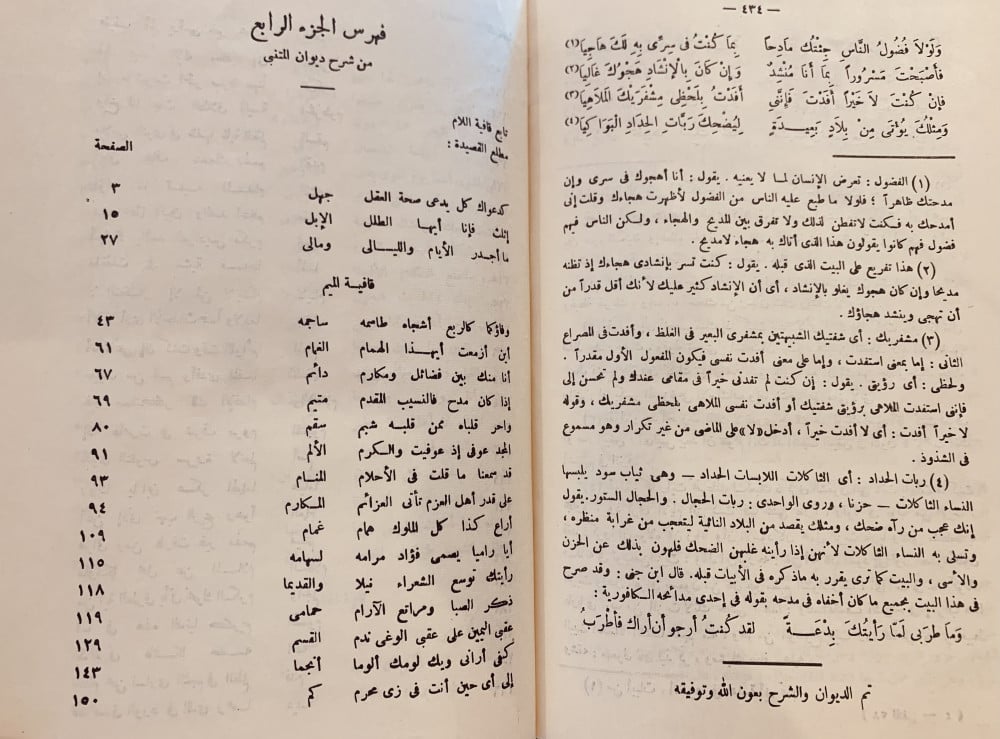 — ٤٣٤ —
وَلَوْلاَ فُضُولُ النَّاسِ جِئْتُكَ مَادِحاً بِمَا كُنْتُ فى سِرِّى بِهِ لَكَ هَاجِيَا(١)
فَأَصْبَحْتَ مَسْرُوراً بِمَا أَنَا مُنْشِدٌ وَإِنْ كَانَ بِالْإِنْشَادِ هَجْوُكَ غَالِيَا(٢)
فَإِنْ كُنْتَ لاَ خَيْراً أَفَدْتَ فَإِنَّنِى أَفَدْتُ بِلَحْظِى مِشْفَرَيْكَ الْمَلاَهِيَا(٣)
وَمِثْلُكَ يُؤْتَى مِنْ بِلاَدٍ بَعِيدَةٍ لِيُضْحِكَ رَبَّاتِ الْحِدَادِ الْبَوَاكِيَا(٤)
(١) الفضول : تعرض الإنسان لما لا يعنيه . يقول : أنا أهجوك فى سرى وإن
مدحتك ظاهراً ؛ فلولا ما طبع عليه الناس من الفضول لأظهرت هجاءك وقلت إنى
أمدحك به فكنت لاتفطن لذلك ولا تفرق بين المديح والهجاء ، ولكن الناس فيهم
فضول فهم كانوا يقولون هذا الذى أتاك به هجاء لامديح .
(٢) هذا تفريع على البيت الذى قبله . يقول : كنت تسر بإنشادى هجاءك إذ تظنه
مديحا وإن كان هجوك يغلو بالإنشاد ، أى أن الإنشاد كثير عليك لأنك أقل قدراً من
أن تهجى وينشد هجاؤك .
(٣) مشفريك : أى شفتيك الشبيهتين بمشفرى البعير فى الغلظ ، وأفدت فى المصراع
الثانى : إما بمعنى استفدت ، وإما على معنى أفدت نفسى فيكون المفعول الأول مقدراً .
ولحظى : أى رؤيتى . يقول : إن كنت لم تفدنى خيراً فى مقامى عندك ولم تحسن إلى
فإننى استفدت الملاهى برؤيتى شفتيك أو أفدت نفسى الملاهى بلحظى مشفريك ، وقوله
لا خيراً أفدت : أى لا أفدت خيراً ، أدخل «لا» على الماضى من غير تكرار وهو مسموع
فى الشذوذ .
(٤) ربات الحداد : أى الثاكلات اللابسات الحداد — وهى ثياب سود يلبسها
النساء الثاكلات — حزنا ، وروى الواحدى : ربات الحجال : والحجال الستور . يقول
إنك عجب من رآه ضحك ، ومثلك يقصد من البلاد النائية ليتعجب من غرابة منظره ،
وتسلى به النساء الثاكلات لأنهن إذا رأينه غلبهن الضحك فلهون بذلك عن الحزن
والأسى ، والبيت كما ترى يقرر به ماذكره فى الأبيات قبله. قال ابن جنى : وقد صرح
فى هذا البيت بجميع ماكان أخفاه فى مدحه بقوله فى إحدى مدائحه الكافورية :
وَمَا طَرَبى لَمّا رَأَيتُكَ بِدْعَةً لقد كُنتُ أرجو أن أراك فأطْرَبُ
تم الديوان والشرح بعون الله وتوفيقه
فهرس الجزء الرابع
من شرح ديوان المتنبى
تابع قافية اللام
مطلع القصيدة : الصفحة
كدعواك كل يدعى صحة العقل جهل ٣
إثلث فإنا أيها الطلل الإبل ١٥
ما أجدر الأيام والليالى ومالى ٢٧
قافية الميم
وفاؤكما كالربع أشجاه طاسمه ساجمه ٤٣
أين أزمعت أيهذا الهمام الغمام ٦١
أنا منك بين فضائل ومكارم دائم ٦٧
إذا كان مدح فالنسيب المقدم متيم ٦٩
واحر قلباه ممن قلبه شبم سقم ٨٠
المجد عوفى إذ عوفيت والكرم الألم ٩١
قد سمعنا ما قلت فى الأحلام المنام ٩٣
على قدر أهل العزم تأتى العزائم المكارم ٩٤
أراع كذا كل الملوك همام غمام ١٠٩
أيا راميا يصمى فؤاد مرامه لسهامه ١١٥
رأيتك توسع الشعراء نيلا والقديما ١١٨
ذكر الصبا ومراتع الآرام حمامى ١١٩
عقبى اليمين على عقبى الوغى ندم القسم ١٢٩
كفى أرانى ويك لومك ألوما أنجما ١٤٣
إلى أى حين أنت فى زى محرم كم ١٥٠